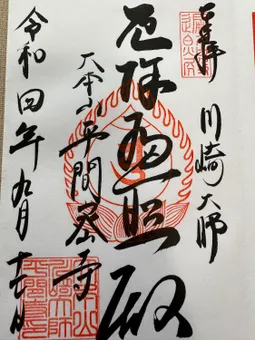 奉拝 川崎大師
厄除遍照殿
大本山 平間寺
令和四年九月日